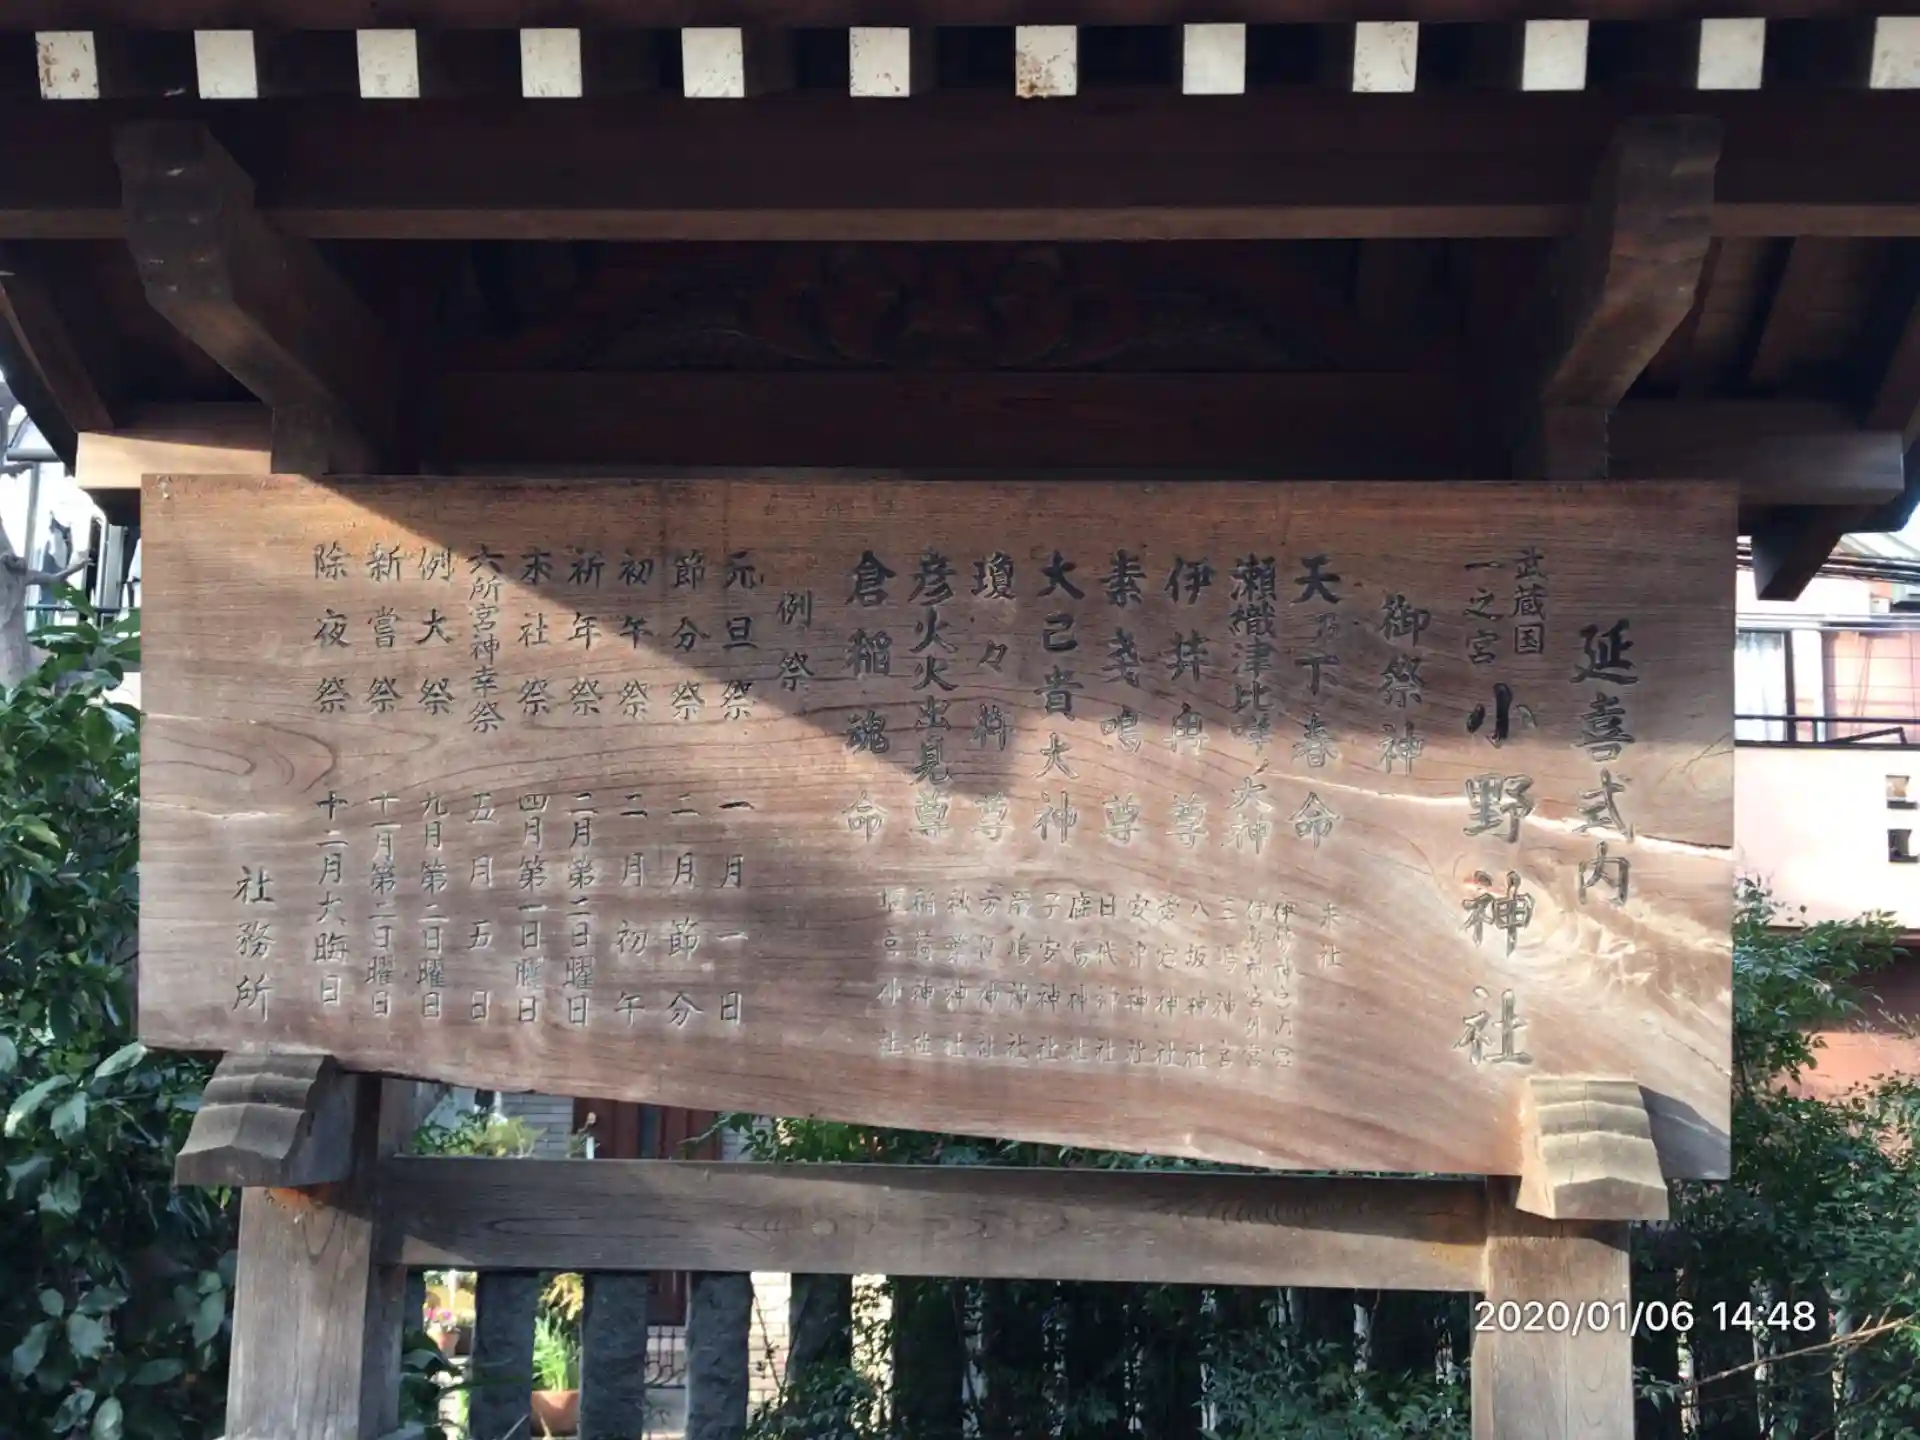 延喜式内
武蔵国
一之宮
小野神社
御祭神
天乃下春命
瀬織津比咩大神
伊弉冉尊
素戔鳴尊
大己貴大神
瓊々杵尊
彦火火出見尊
倉稲魂命
末社
伊勢神宮内宮
伊勢神宮外宮
三嶋神宮
八坂神社
神社
安津神社
日代神社
鹿島神社
子安神社
神社
神社
秋葉神社
稲荷神社
小社
例祭
元旦祭 一月一日
節分祭 二月節分
初午祭 二月初午
祈年祭 二月第二日曜日
末社祭 四月第一日曜日
六所宮神幸祭 五月五日
例大祭 九月第二日曜日
新嘗祭 十一月第二日曜日
除夜祭 十二月大晦日
社務所
2020/01/06 14:48